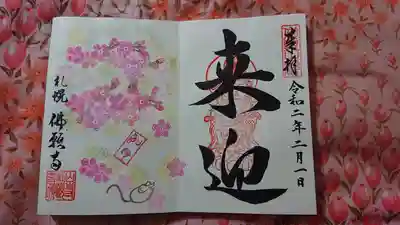 奉拝
令和二年二月一日
来迎
札幌
佛願寺